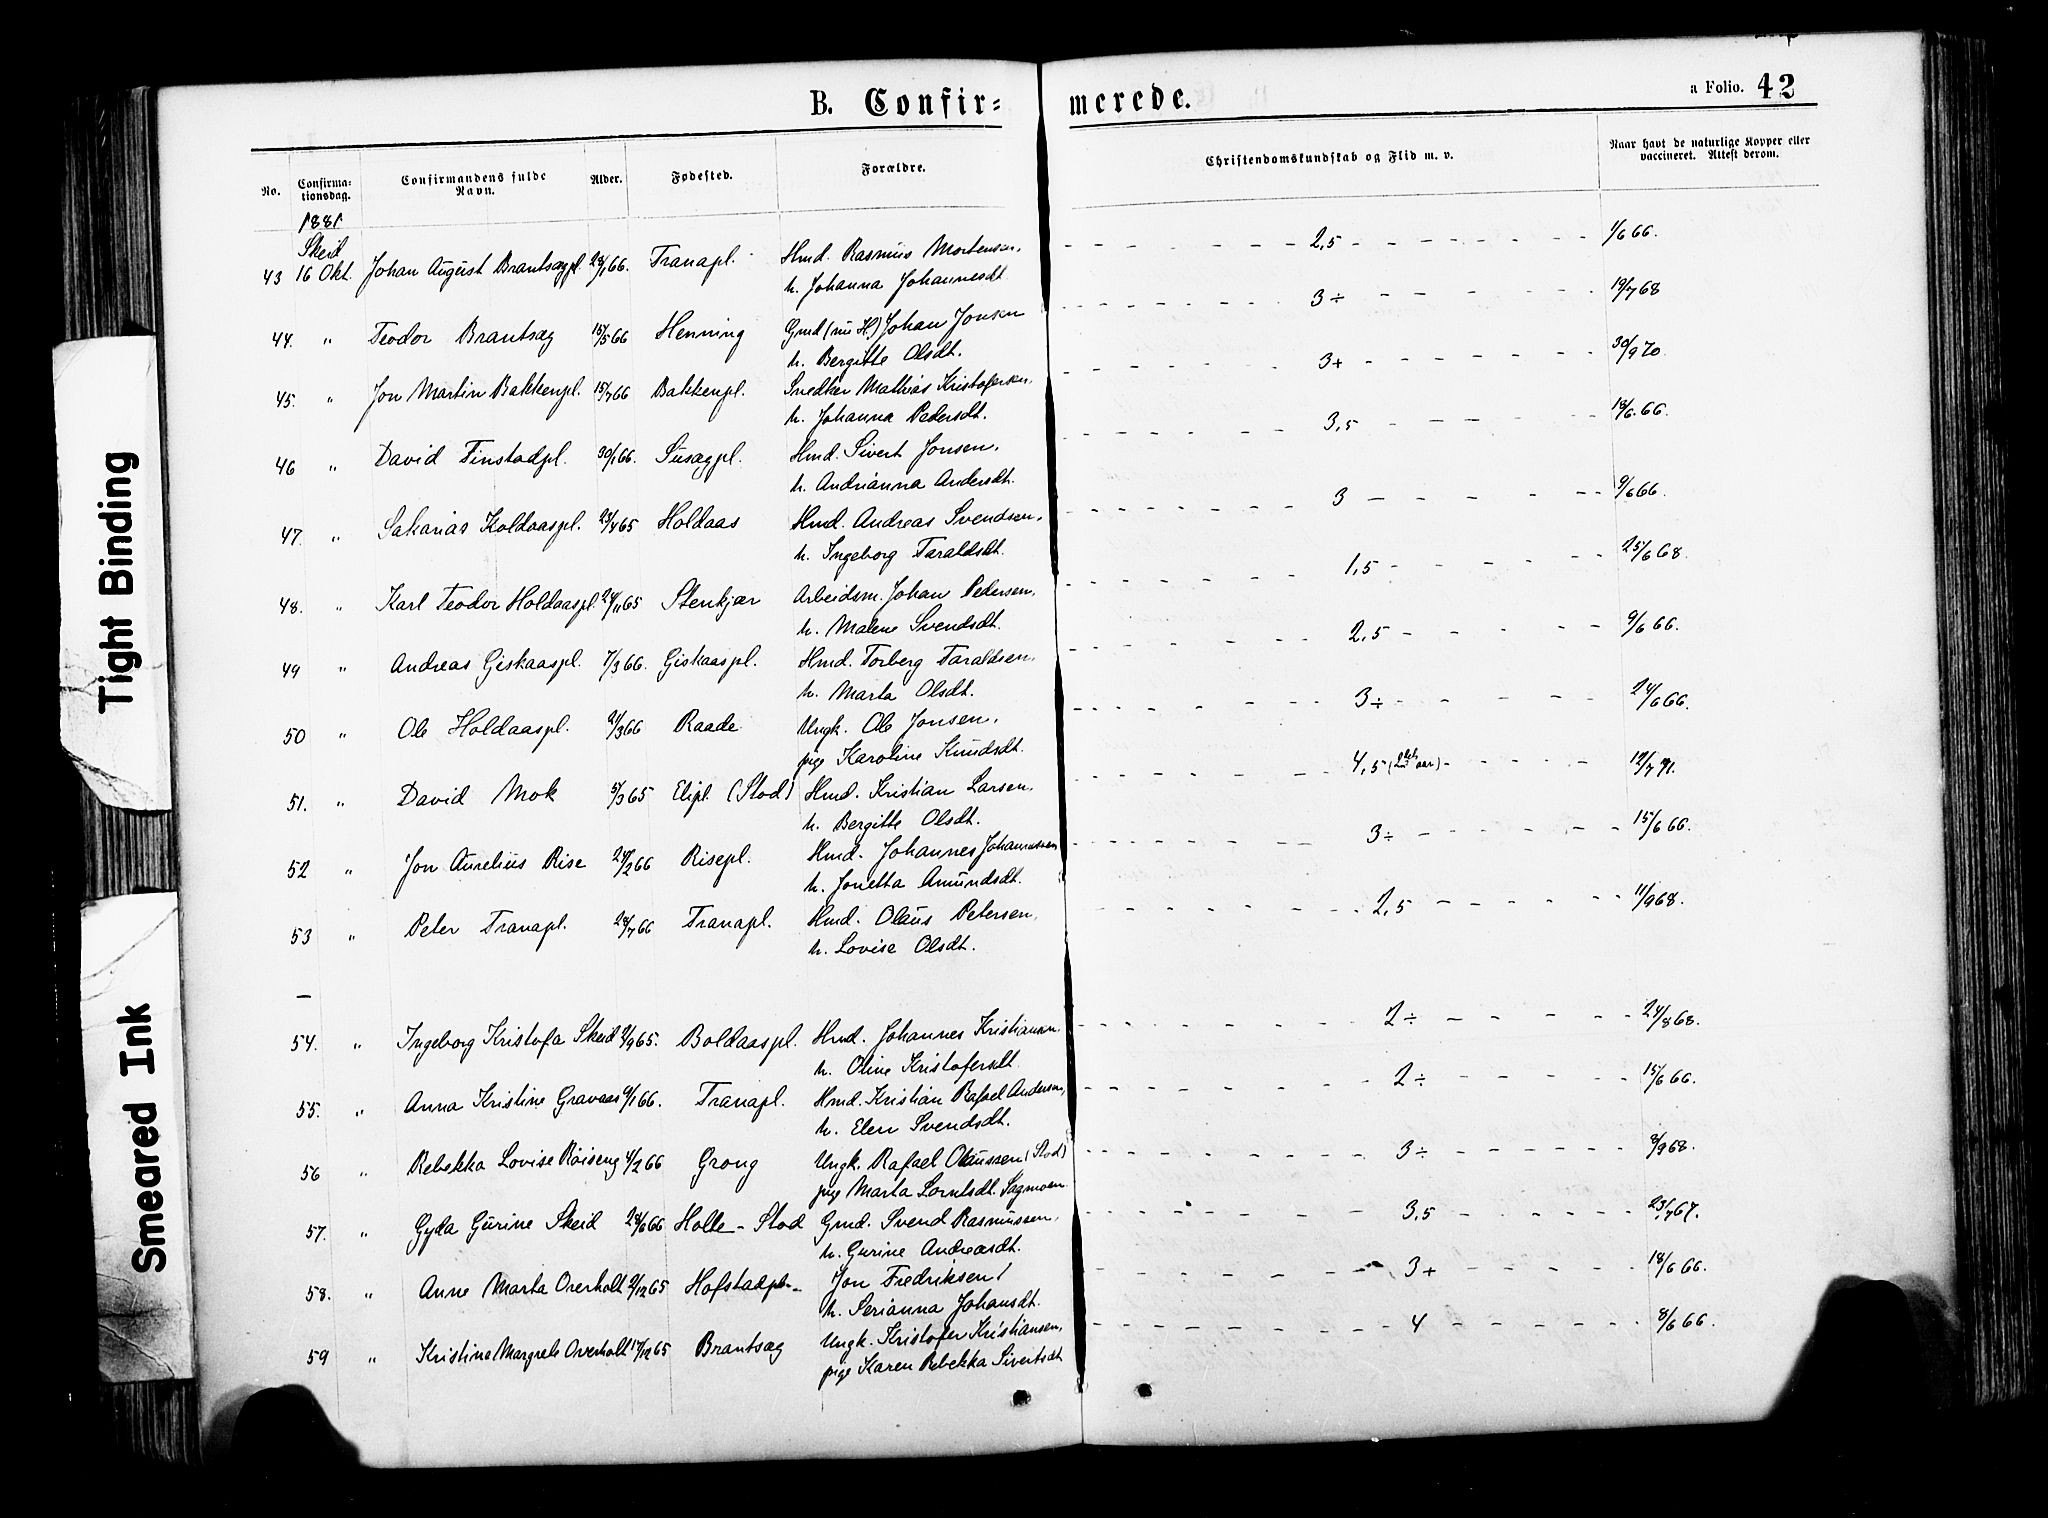 B. Confir= merede.
a Folio. 42
No. Confirma-tionsdag. Confirmandens fulde Navn. Alder. Fødested. Forældre. Christendomskundskab og Flid m. v. Naar havt de naturlige Kopper eller vaccineret. Attest derom.
1881
Skeid
43 16 Okt. Johan August Brantsægpl. 28/1 66. Tranapl. Hmd. Rasmus Mortensen, 2,5 1/6 66.
h. Johanna Johannesdt
44. " Teodor Brantsæg 15/5 66 Henning Gmd (nu H.) Johan Jonsen 3÷ 19/7 68
h. Bergitte Olsdt.
45. " Jon Martin Bakkenpl. 15/7 66 Bakkenpl. Snedker Mathias Kristofersen, 3+ 30/9 70.
h. Johanna Pedersdt.
46 " David Finstadpl. 30/1 66. Susægpl. Hmd. Sivert Jonsen, 3,5 18/6 66.
h. Andrianna Andersdt.
47. " Sakarias Holdaaspl. 23/4 65 Holdaas Hmd. Andreas Svendsen, 3 9/6 66.
h. Ingeborg Taraldsdt.
48. " Karl Teodor Holdaaspl. 24/11 65 Stenkjær Arbeidsm. Johan Pedersen, 1,5 25/6 68.
h. Malene Svendsdt.
49 " Andreas Giskaaspl. 7/3 66. Giskaaspl. Hmd. Torberg Taraldsen, 2,5 9/6 66.
h. Marta Olsdt.
50 " Ole Holdaaspl. 21/3 66 Raade Ungk. Ole Jonsen, 3÷ 24/6 66.
pige Karoline Knudsdt.
51. " David Mok 5/3 65 Elipl. (Stod) Hmd. Kristian Larsen, 4,5 12/7 71.
h. Bergitte Olsdt.
52 " Jon Aurelius Rise 24/2 66 Risepl. Hmd. Johannes Johannessen 3÷ 15/6 66.
h. Jonetta Amundsdt.
53 " Peter Tranapl. 24/7 66 Tranapl. Hmd. Olaus Petersen, 2,5 11/9 68.
h. Lovise Olsdt.
54. " Ingeborg Kristofa Skeid 9/9 65. Boldaaspl. Hmd. Johannes Kristiansen, 2÷ 24/8 68.
h. Oline Kristofersdt.
55. " Anna Kristine Gravaas 9/1 66. Tranapl. Hmd. Kristian Rafael Andersen, 2÷ 15/6 66.
h. Elen Svendsdt.
56 " Rebekka Lovise Røiseng 4/2 66 Grong Ungk. Rafael Olaussen (Stod) 3÷ 8/9 68.
pige Marta Lorntsdt. Sagmoen
57. " Gyda Gurine Skeid 28/6 66 Holle - Stod Gmd. Svend Rasmussen, 3,5 23/7 67.
h. Gurine Andreasdt.
58. " Anne Marta Overholt 2/12 65 Hofstadpl. Jon Fredriksen 3+ 18/6 66.
h. Serianna Johansdt.
59 " Kristine Margrete Overholt 17/12 65 Brantsæg Ungk. Kristofer Kristiansen, 4 8/6 66.
pige Karen Rebekka Sivertsdt
Tight Binding
Smeared Ink